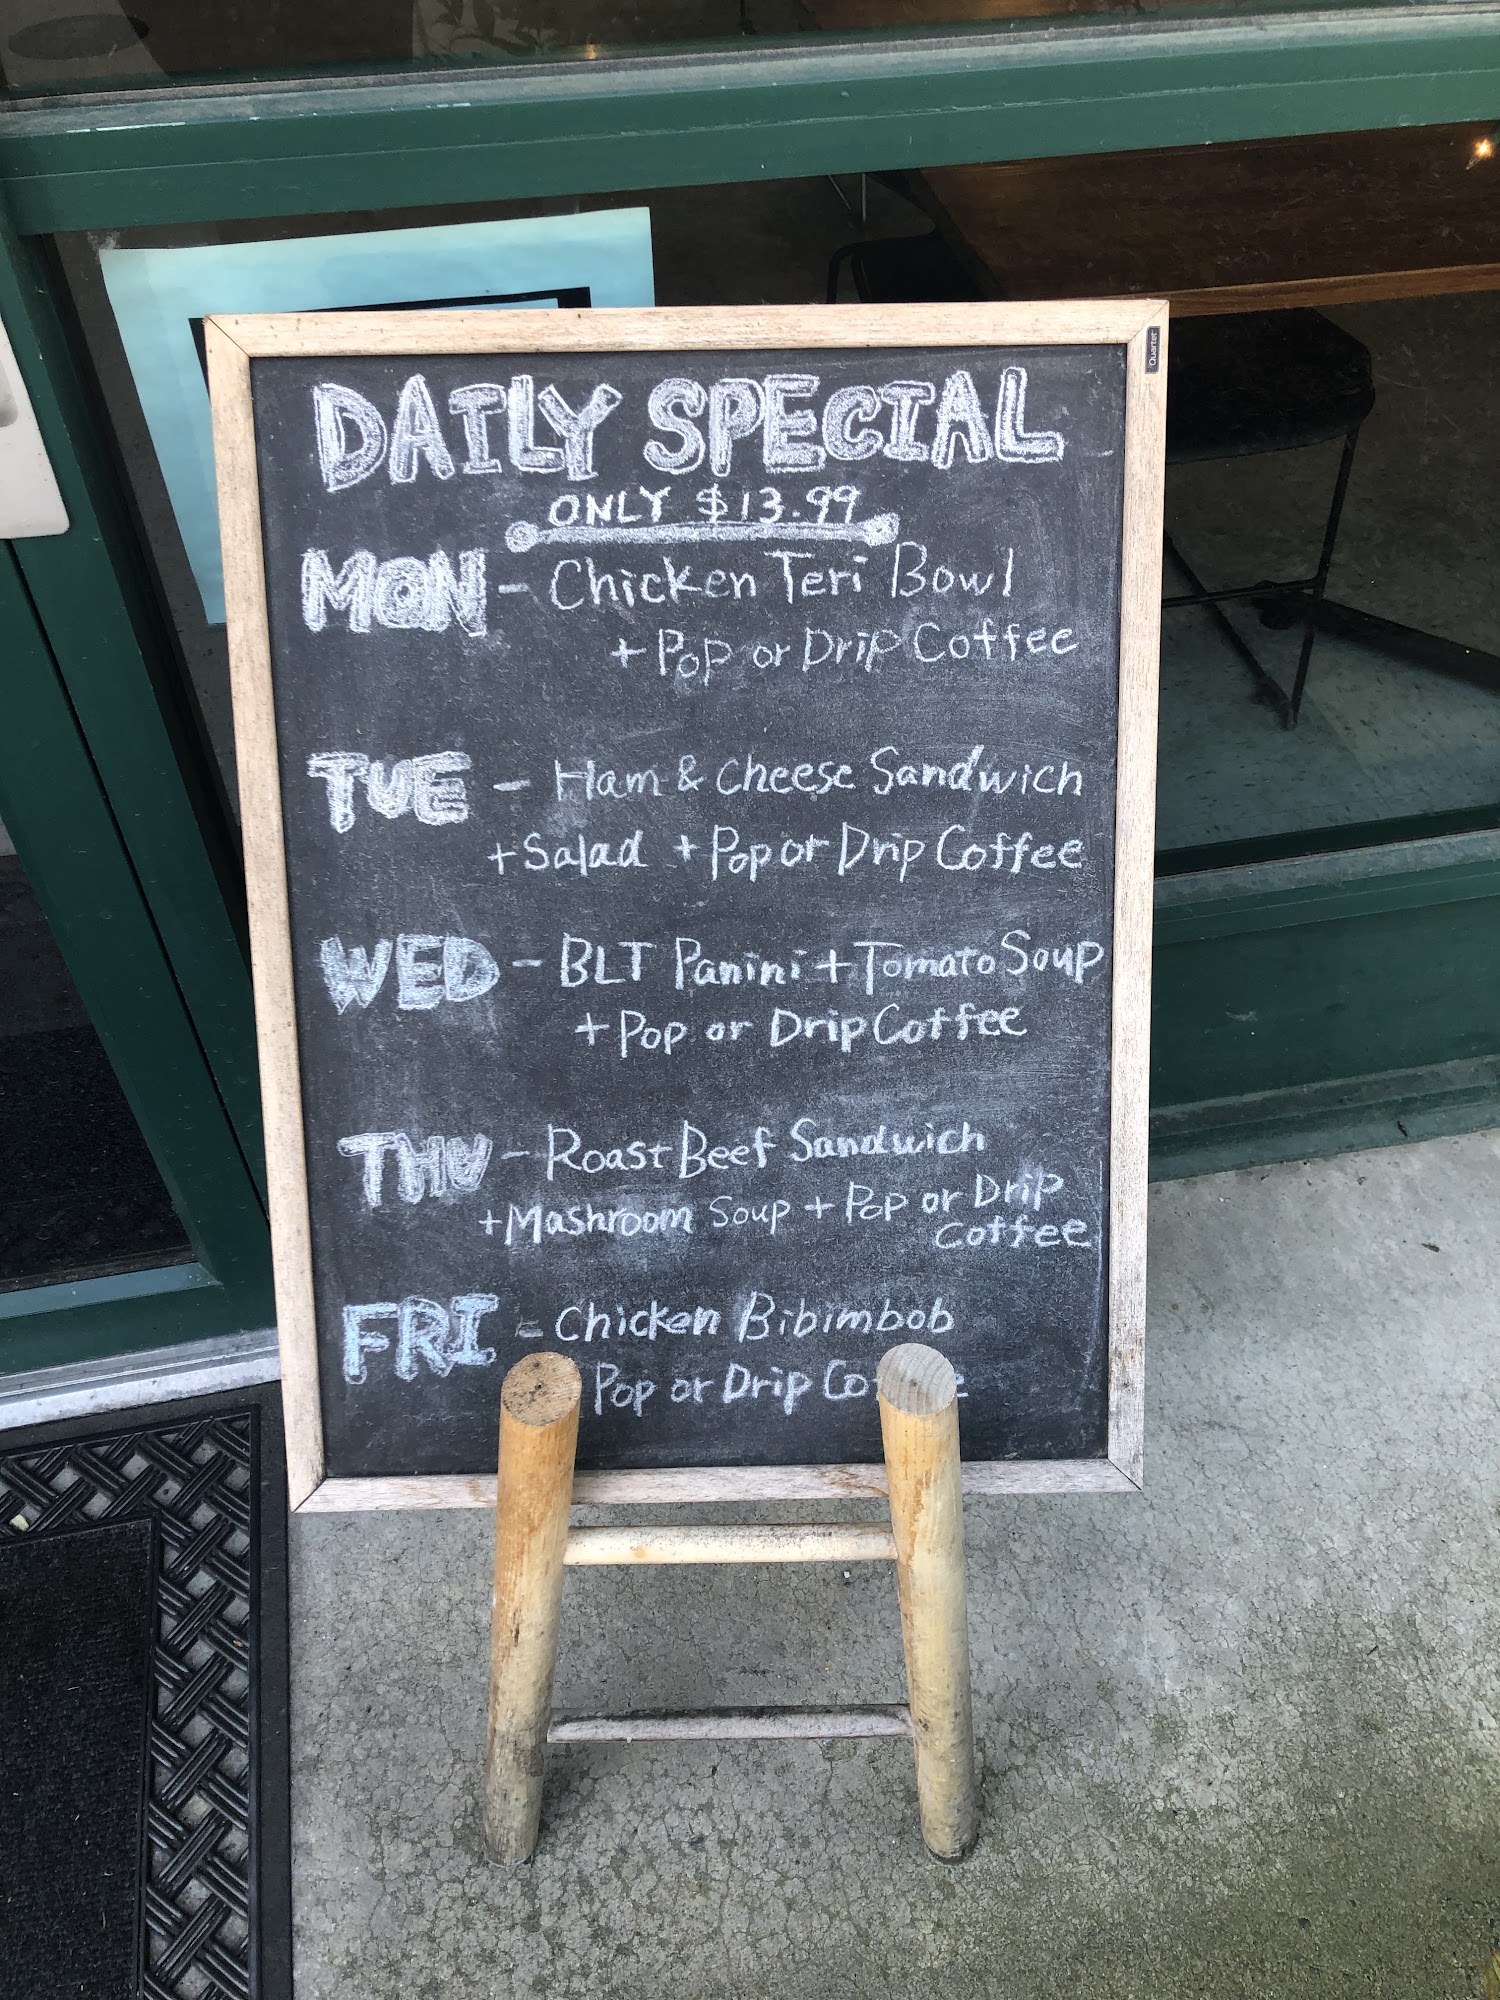 DAILY SPECIAL
ONLY $13.99
MON - Chicken Teri Bowl
+ Pop or Drip Coffee
TUE - Ham & Cheese Sandwich
+ Salad + Pop or Drip Coffee
WED - BLT Panini + Tomato Soup
+ Pop or Drip Coffee
THU - Roast Beef Sandwich
+ Mashroom Soup + Pop or Drip
Coffee
FRI - Chicken Bibimbob
Pop or Drip
Quartet